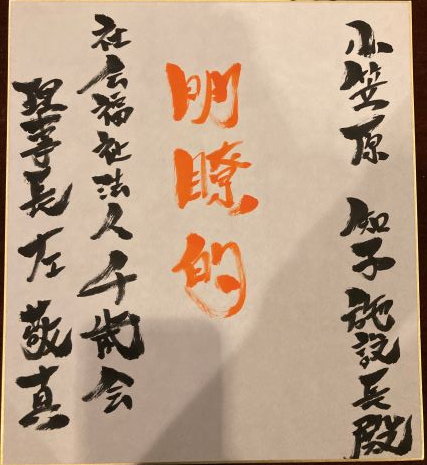 小笠原 知子施設長殿
明瞭的
社会福祉法人千歳会
理事長 左 敬真